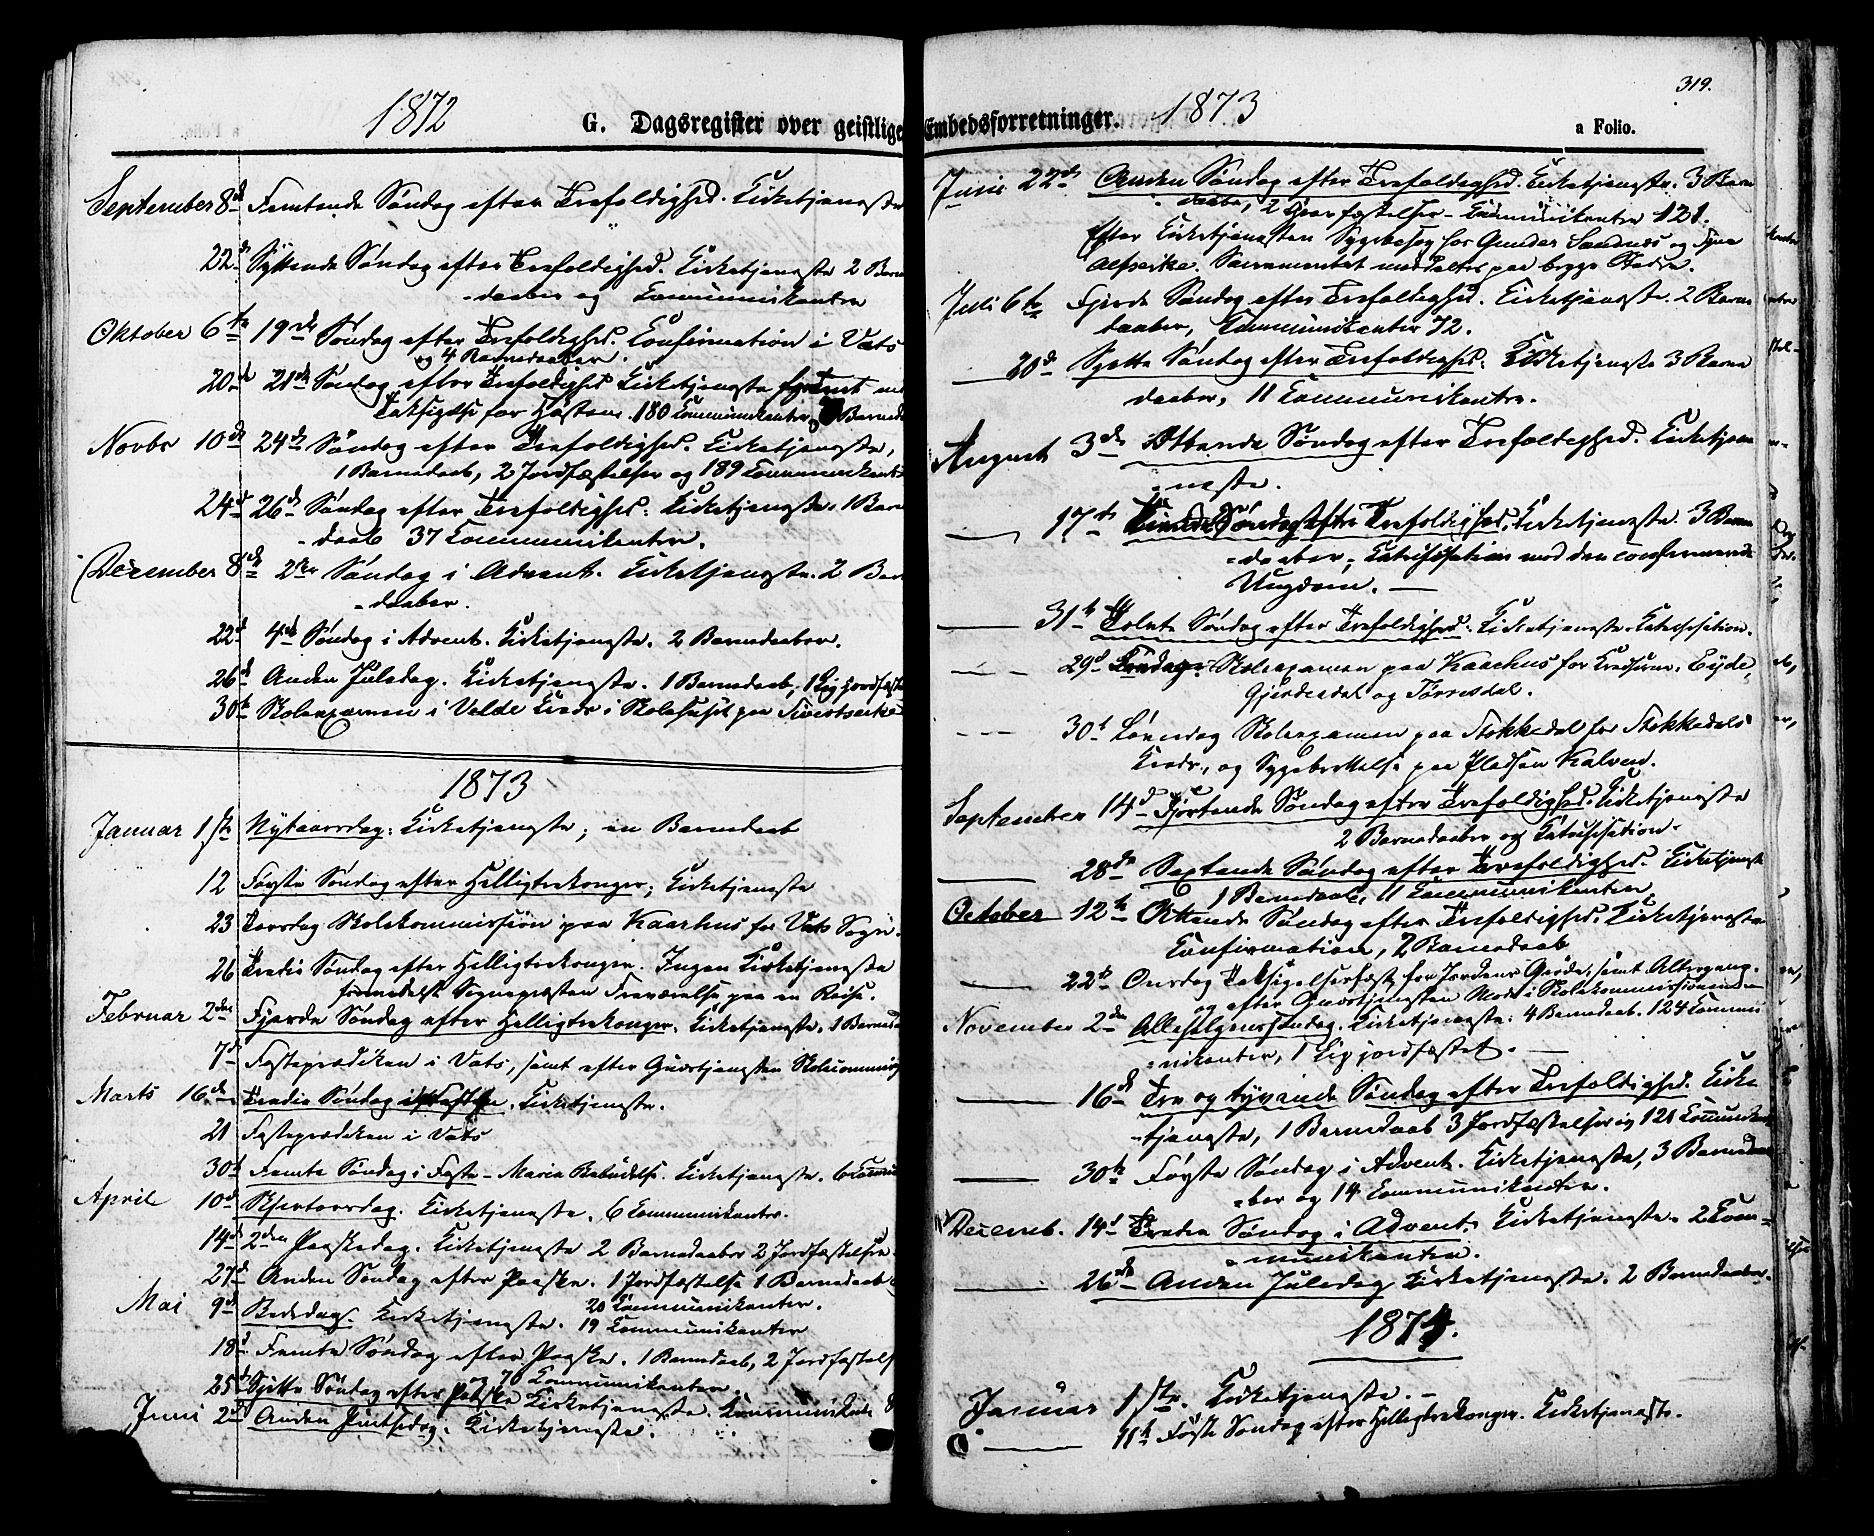 1872
G. Dagsregister over geistlige
September 8de Femtende Søndag efter Trefoldighed. Kirketjeneste
22de Syttende Søndag efter Trefoldighed. Kirketjeneste 2 Barne
daaber og Communikanter
Oktober 6te 19de Søndag efter Trefoldighed. Confirmation i Vats
og 4 Barnedaaber.
20de 21de Søndag efter Trefoldighed Kirketjeneste
Taksigelse for Høsten. 180 Communikanter, Barned
Novbr 10de 24de Søndag efter Trefoldighed. Kirketjeneste,
1 Barnedaab, 2 Jordfæstelser og 189 Communikant
24de 26de Søndag efter Trefoldighed. Kirketjeneste. 1 Barne
daab 37 Communikanter.
December 8de 2den Søndag i Advent. Kirketjeneste. 2 Bar
daaber.
22de 4de Søndag i Advent. Kirketjeneste. 2 Barnedaaber.
26de Anden Juledag. Kirketjeneste. 1 Barnedaab, 1 Lig jordfæst
30te Skoleexamen i Velde Kreds i Skolehuset paa
1873
Januar 1ste Nytaarsdag. Kirketjeneste; en Barnedaab
12 Første Søndag efter Helligtrekonger; Kirketjeneste
23 Torsdag Skolekommission paa Kaarhus for Vats Sogn.
26 Tredie Søndag efter Helligtrekonger. Ingen Kirketjeneste
formedelst Sognepræsten Fraværelse paa en Reise.
Februar 2den Fjerde Søndag efter Helligtrekonger. Kirketjeneste. 1 Barned
7de Fasteprædiken i Vats, samt efter Gudstjenesten Skolecommiss
Marts 16de Tredie Søndag i Faste. Kirketjeneste.
21 Fasteprædiken i Vats
30te Femte Søndag i Faste - Maria Bebudelse. Kirketjeneste. 6 Commu
April 10de Skjertorsdag. Kirketjeneste. 6 Communikanter.
14de 2den Paaskedag. Kirketjeneste 2 Barnedaaber 2 Jordfæstelser
27de Anden Søndag efter Paaske. 1 Jordfæstelse 1 Barnedaab
20 Communikanter.
Mai 9de Bededag. Kirketjeneste. 19 Communikanter
18de Femte Søndag efter Paaske. 1 Barnedaab, 2 Jordfæstels
og 70 Communikanter.
25de Sjette Søndag efter Paaske Kirketjeneste. Kommunikante 8
Juni 2de Anden Pintsedag. Kirketjeneste.
319.
Embedsforretninger. 1873
a Folio.
Juni 22de Anden Søndag efter Trefoldighed. Kirketjeneste. 3 Barne
daaber, 2 Jordfæstelser - Communikanter 121.
Efter Kirketjenesten Sygebesøg hos Gunder Sandnes og
Sacramentet meddeltes paa begge Steder.
Juli 6te Fjerde Søndag efter Trefoldighed. Kirketjeneste. 2 Barne
daaber, Communikanter 72.
20de Sjette Søndag efter Trefoldighed. Kirketjeneste 3 Barne
daaber, 11 Communikanter.
August 3de Ottende Søndag efter Trefoldighed. Kirketjene
neste.
17de Tiende Søndag efter Trefoldighed. Kirketjeneste. 3 Barne
daaber, Katechisation med den confirmerede
Ungdom.
31te Tolvte Søndag efter Trefoldighed. Kirketjeneste. Katechisation.
29de Fredag. Skoleexamen paa Kaarhus for Kredsene. Eyde,
Gjerdesdal og Tørresdal.
30te Løverdag Skoleexamen paa Stokkedal for Stokkedals
Kreds, og Sygeberettelse paa Pladsen Kalven.
September 14de Fjortende Søndag efter Trefoldighed. Kirketjeneste
2 Barnedaaber og Katechisation.
28de Sextende Søndag efter Trefoldighed. Kirketjeneste
1 Barnedaab, 11 Communikanter.
October 12te Attende Søndag efter Trefoldighed. Kirketjeneste
Confirmation, 2 Barnedaab
22de Onsdag Taksigelsesfest for Jordens Grøde, samt Altergang.
og efter Gudstjenesten Møde i Skolekommissionen
November 2den Allehelgenssøndag. Kirketjeneste. 4 Barnedaab. 124 Commu
nikanter, 1 Lig jordfæstet.
16de Tre og tyvende Søndag efter Trefoldighed. Kirke
tjeneste, 1 Barnedaab 3 Jordfæstelser og 121 Communikan
30te Første Søndag i Advent. Kirketjeneste, 3 Barnedaa
ber og 14 Communikanter.
Decemb. 14de Tredie Søndag i Advent. Kirketjeneste. 2 Com
munikanter.
26de Anden Juledag Kirketjeneste. 2 Barnedaaber.
1874.
Januar 1ste. Kirketjeneste.
11te Første Søndag efter Helligtrekonger. Kirketjeneste.